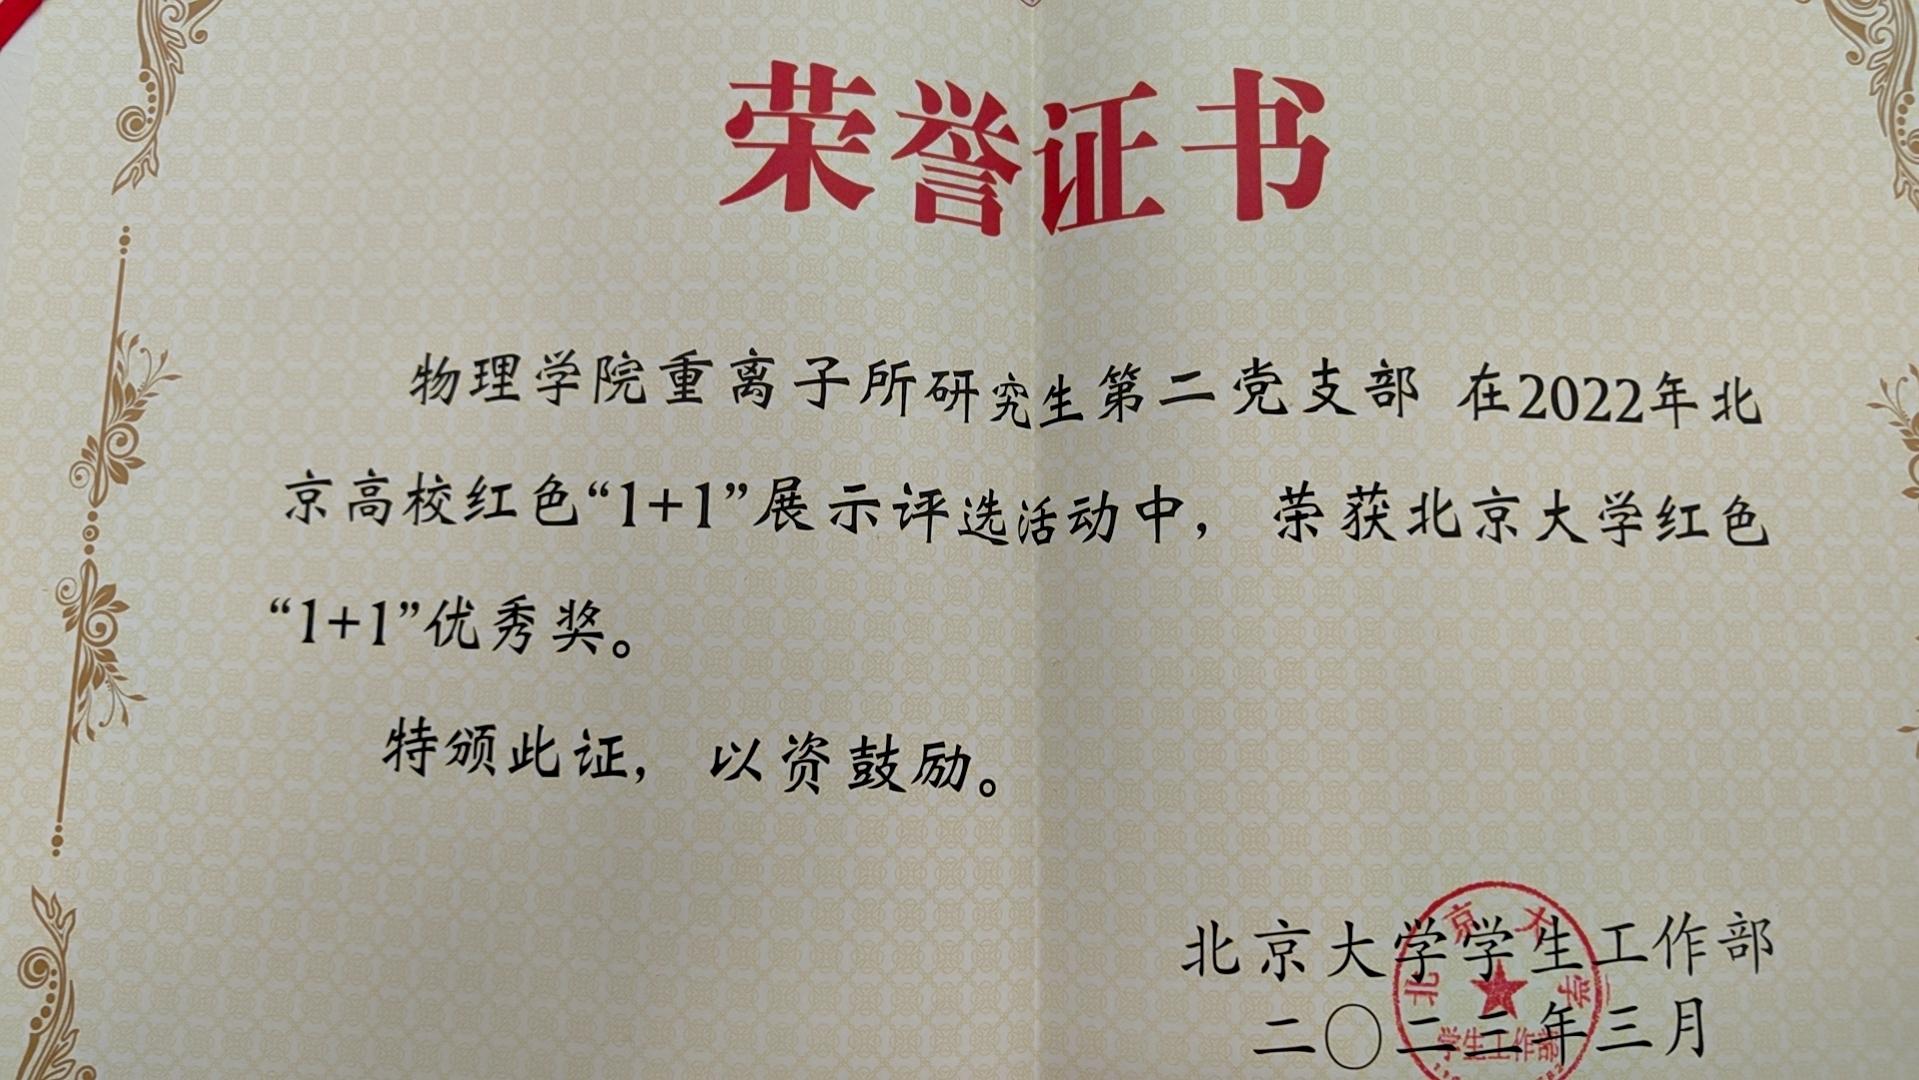 荣誉证书
物理学院重离子所研究生第二党支部 在2022年北
京高校红色“1+1”展示评选活动中，荣获北京大学红色
“1+1”优秀奖。
特颁此证，以资鼓励。
北京大学学生工作部
二〇二三年三月
北京大学
学生工作部